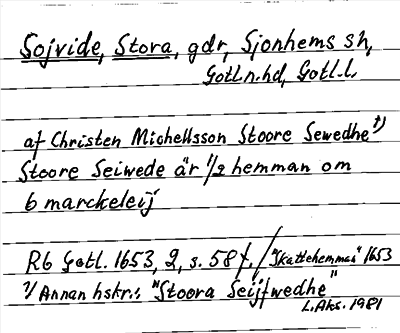 Sojvide, Stora, gdr, Sjonhems sn,
Gotl.n.hd, Gotl.l.
af Christen Michellsson Stoore Sewedhe 1)
Stoore Seiwede är 1/2 hemman om
6 marckeleij
Rb Gotl. 1653, 2, s. 58 f. / "Skattehemman" 1653
1) Annan hskr.: "Stoora Seijfwedhe"
L.Aks. 1981